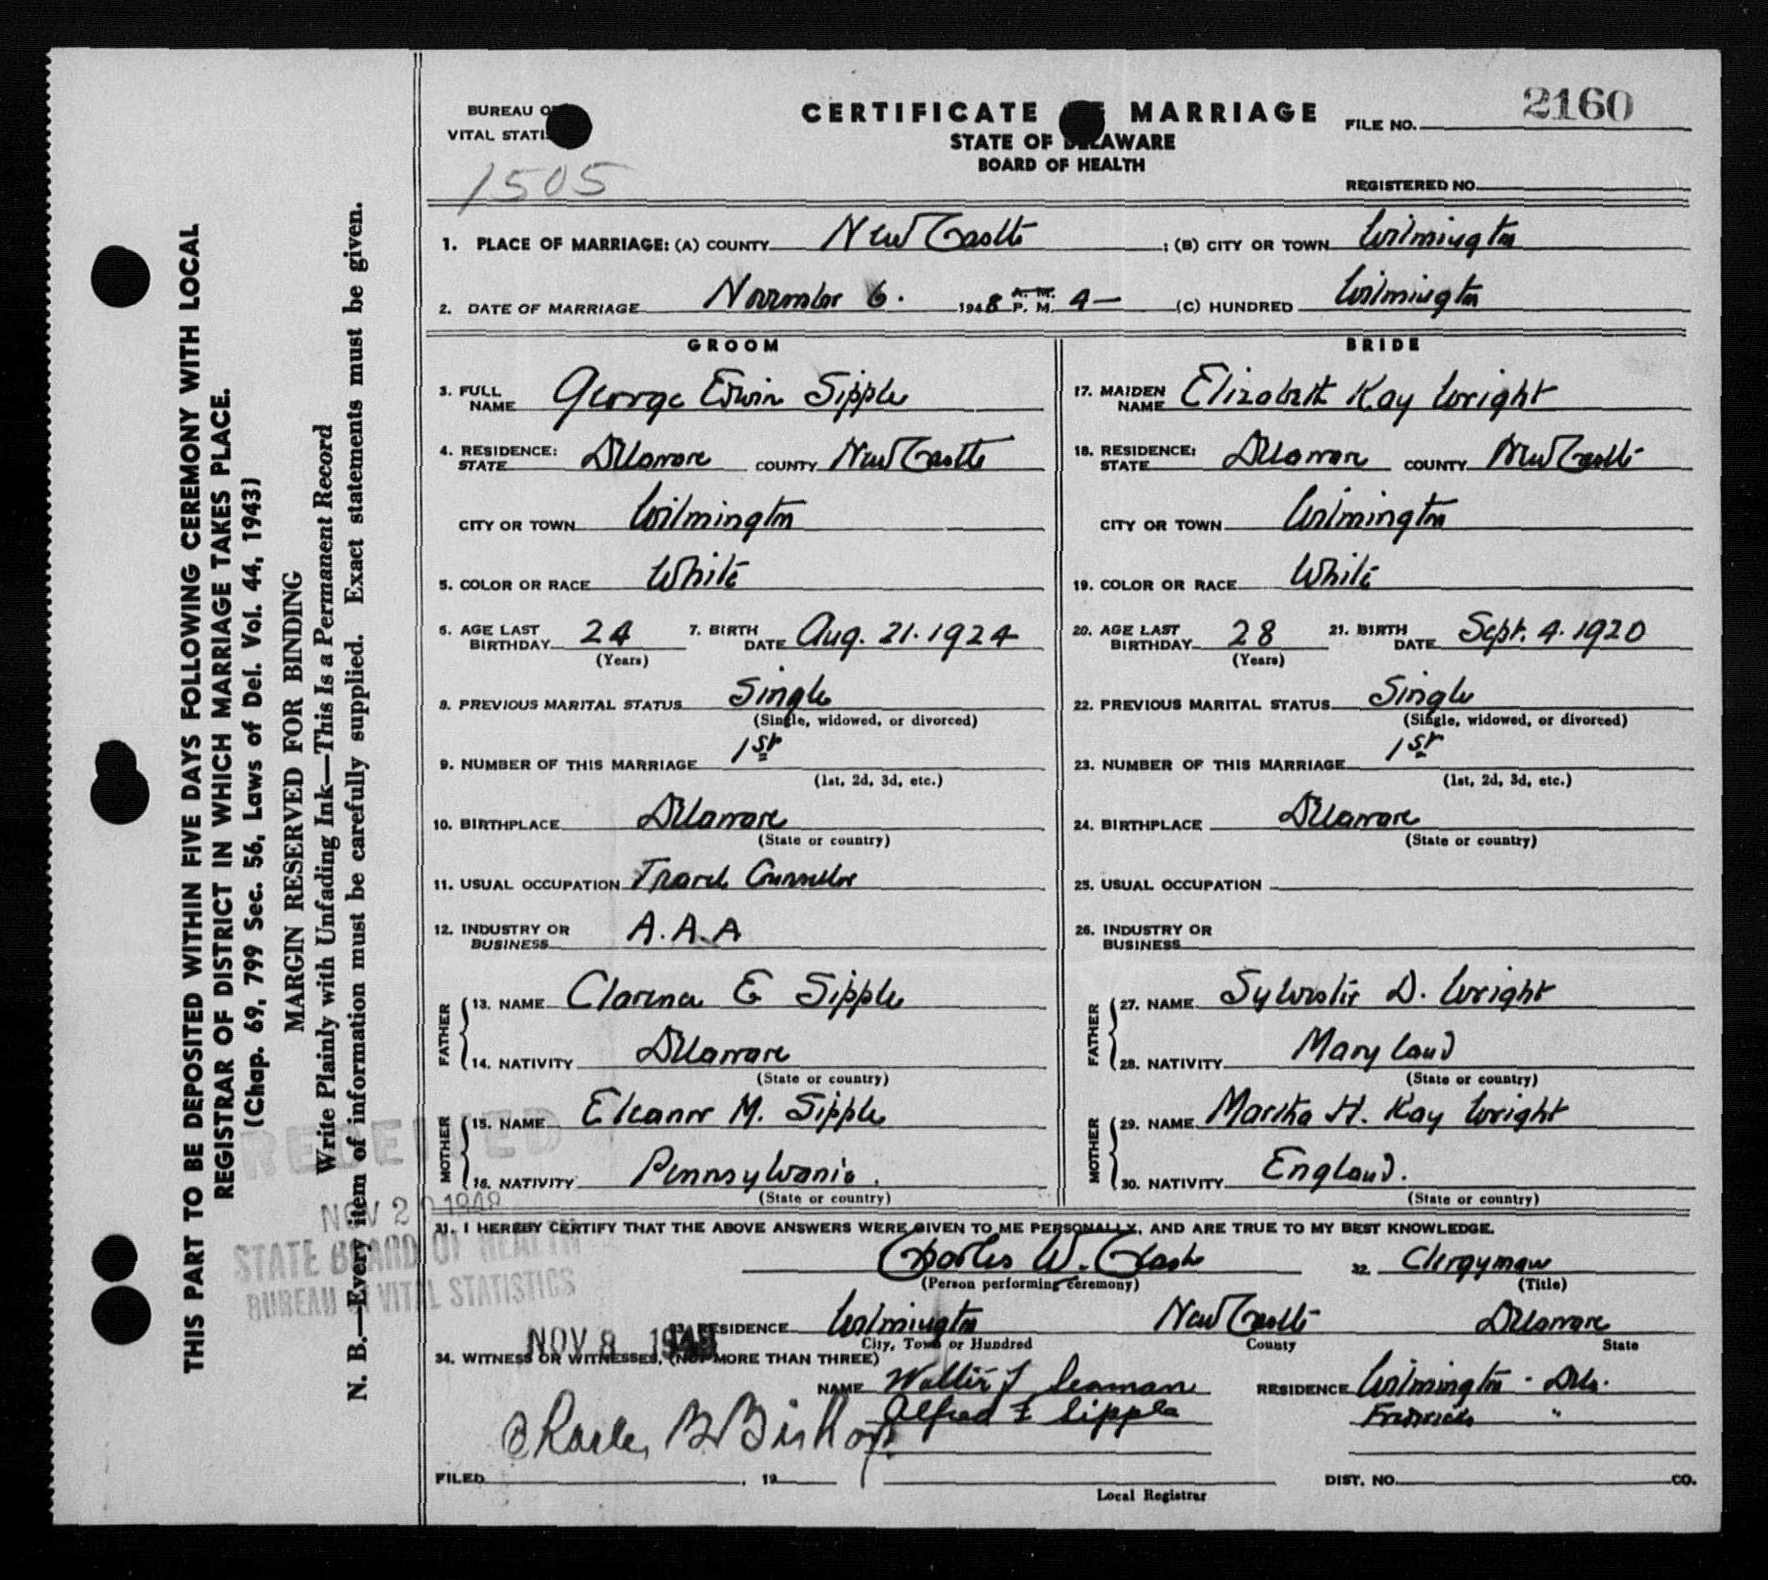 BUREAU O
VITAL STATI
1505
CERTIFICATE MARRIAGE
STATE OF DELAWARE
BOARD OF HEALTH
FILE NO. 2160
REGISTERED NO.
1. PLACE OF MARRIAGE: (A) COUNTY New Castle ; (B) CITY OR TOWN Wilmington
2. DATE OF MARRIAGE November 6. 1948 A. M. P. M. 4— (C) HUNDRED Wilmington
GROOM
3. FULL NAME George Erwin Sipple
4. RESIDENCE: STATE Delaware COUNTY New Castle
CITY OR TOWN Wilmington
5. COLOR OR RACE White
6. AGE LAST BIRTHDAY 24 7. BIRTH DATE Aug. 21. 1924
(Years)
8. PREVIOUS MARITAL STATUS Single
(Single, widowed, or divorced)
9. NUMBER OF THIS MARRIAGE 1st
(1st, 2d, 3d, etc.)
10. BIRTHPLACE Delaware
(State or country)
11. USUAL OCCUPATION Travel Counsellor
12. INDUSTRY OR BUSINESS A.A.A
FATHER
13. NAME Clarence E Sipple
14. NATIVITY Delaware
(State or country)
MOTHER
15. NAME Eleanor M. Sipple
16. NATIVITY Pennsylvania.
(State or country)
BRIDE
17. MAIDEN NAME Elizabeth Kay Wright
18. RESIDENCE: STATE Delaware COUNTY New Castle
CITY OR TOWN Wilmington
19. COLOR OR RACE White
20. AGE LAST BIRTHDAY 28 21. BIRTH DATE Sept. 4. 1920
(Years)
22. PREVIOUS MARITAL STATUS Single
(Single, widowed, or divorced)
23. NUMBER OF THIS MARRIAGE 1st
(1st, 2d, 3d, etc.)
24. BIRTHPLACE Delaware
(State or country)
25. USUAL OCCUPATION
26. INDUSTRY OR BUSINESS
FATHER
27. NAME Sylvester D. Wright
28. NATIVITY Maryland
(State or country)
MOTHER
29. NAME Martha H. Kay Wright
30. NATIVITY England.
(State or country)
31. I HEREBY CERTIFY THAT THE ABOVE ANSWERS WERE GIVEN TO ME PERSONALLY, AND ARE TRUE TO MY BEST KNOWLEDGE.
Charles W. Clash 32. Clergyman
(Person performing ceremony) (Title)
RESIDENCE Wilmington New Castle Delaware
City, Town or Hundred County State
34. WITNESS OR WITNESSES, (NOT MORE THAN THREE)
NAME Walter J Seaman RESIDENCE Wilmington - Del.
Alfred F Sipple "
FILED , 19
Local Registrar
DIST. NO. CO.
THIS PART TO BE DEPOSITED WITHIN FIVE DAYS FOLLOWING CEREMONY WITH LOCAL
REGISTRAR OF DISTRICT IN WHICH MARRIAGE TAKES PLACE.
(Chap. 69, 799 Sec. 56, Laws of Del. Vol. 44, 1943)
MARGIN RESERVED FOR BINDING
Write Plainly with Unfading Ink—This Is a Permanent Record
N. B.—Every item of information must be carefully supplied. Exact statements must be given.
RECEIVED
NOV 20 1948
STATE BOARD OF HEALTH
BUREAU OF VITAL STATISTICS
NOV 8 1948